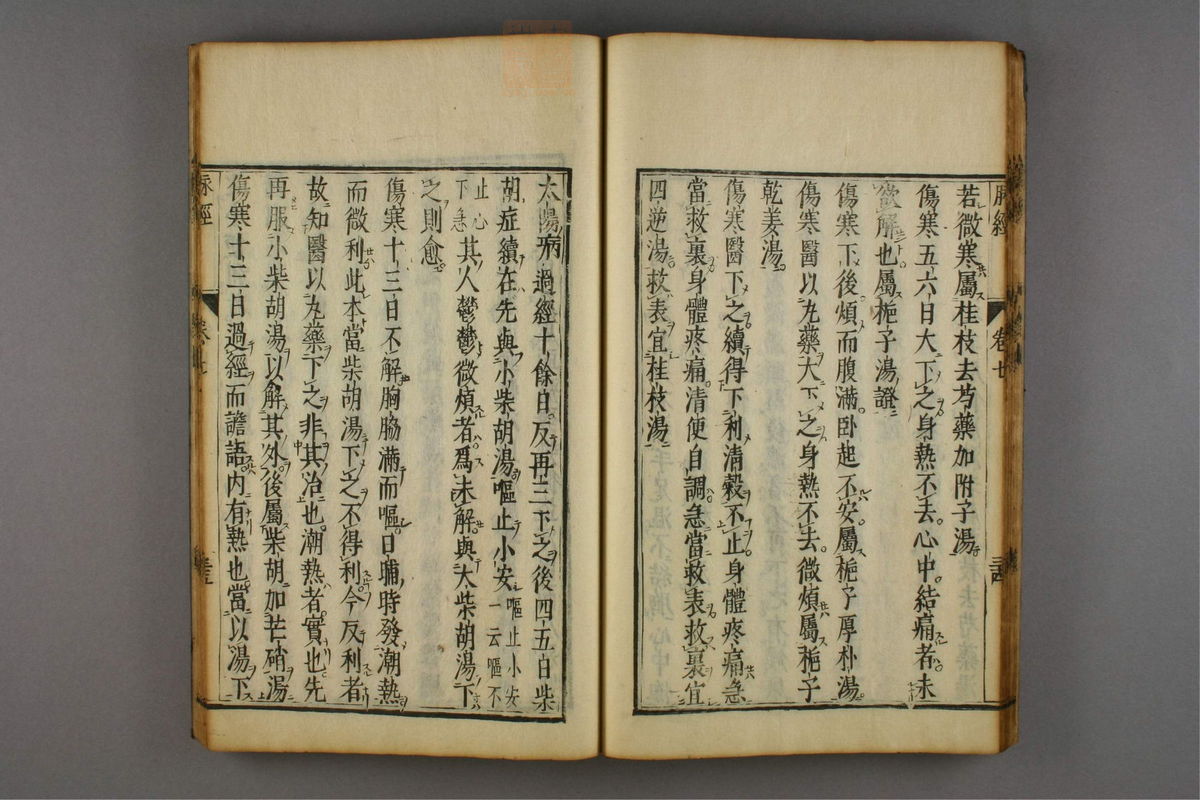 脉經 卷七
若微寒屬桂枝去芍藥加附子湯
傷寒五六日大下之身熱不去心中結痛者未
欲解也屬梔子湯證
傷寒下後煩而腹滿卧起不安屬梔子厚朴湯
傷寒醫以丸藥大下之身熱不去微煩屬梔子
乾姜湯
傷寒醫下之續得下利清穀不止身體疼痛急
當救裏身體疼痛清便自調急當救表救裏宜
四逆湯救表宜桂枝湯
太陽病過經十餘日反再三下之後四五日柴
胡症續在先與小柴胡湯嘔止小安嘔止小安一云嘔不
止心下急其人鬱鬱微煩者爲未解與大柴胡湯下
之則愈
傷寒十三日不解胸脇滿而嘔日晡時發潮熱
而微利此本當柴胡湯下之不得利今反利者
故知醫以丸藥下之非其治也潮熱者實也先
再服小柴胡湯以解其外後屬柴胡加芒硝湯
傷寒十三日過經而譫語內有熱也當以湯下
脉經